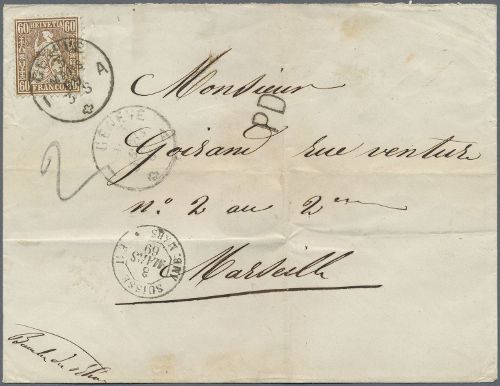 60 HELVETIA 60
60 FRANCO 60
GENÈVE
A
GENÈVE
PD
2
Monsieur
Goirand rue venture
n.º 2 au 2me
Marseille
SUISSE AMB. MARS.
8
MARS
69